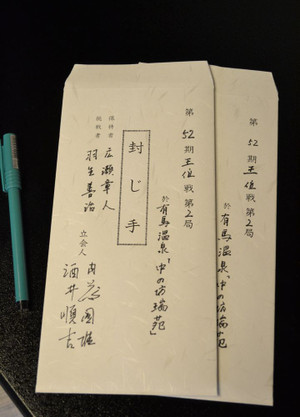 第52期王位戦第2局
於 有馬温泉「中の坊瑞苑
第52期王位戦第2局
於 有馬温泉「中の坊瑞苑」
封じ手
保持者 広瀬章人
挑戦者 羽生善治
立会人 内藤國雄
酒井順吉